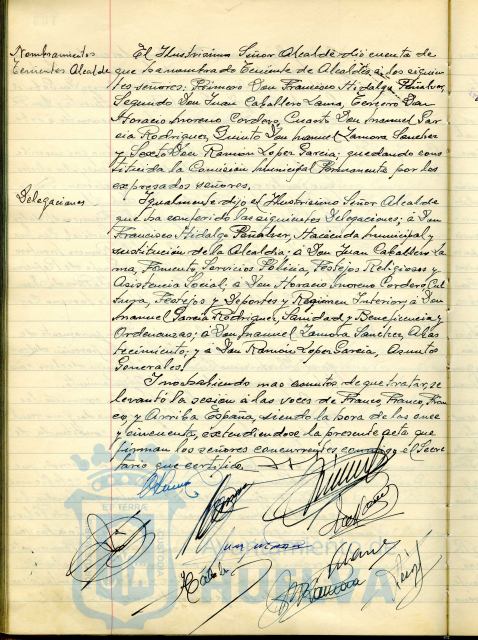 Nombramientos
Tenientes Alcalde
El Ilustrisimo Señor Alcalde dió cuenta de
que ha nombrado Teniente de Alcaldes á los siguien
tes señores: Primero Don Francisco Hidalgo Peñalver,
Segundo Don Juan Caballero Lama, Tercero Don
Horacio Moreno Cordero, Cuarto Don Manuel Gar
cia Rodriguez, Quinto Don Manuel Zamora Sanchez
y Sexto Don Ramon Lopez Garcia; quedando cons
tituida la Comisión Municipal Permanente por los
expresados señores.
Delegaciones
Igualmente dijo el Ilustrisimo Señor Alcalde
que ha conferido las siguientes Delegaciones; á Don
Francisco Hidalgo Peñalver, Hacienda Municipal y
sustitución de la Alcaldia; á Don Juan Caballero La
ma, Fomento, Servicios Policia, Festejos Religiosos y
Asistencia Social; á Don Horacio Moreno Cordero, Cul
tura, Festejos y Deportes y Régimen Interior; á Don
Manuel Garcia Rodriguez, Sanidad y Beneficencia y
Ordenanzas; á Don Manuel Zamora Sanchez, Abas
tecimiento; y á Don Ramon Lopez Garcia, Asuntos
Generales.
Y no habiendo mas asuntos de que tratar, se
levantó la sesión á las voces de Franco, Franco, Fran
co, y Arriba España, siendo la hora de las once
y cincuenta, extendiendose la presente acta que
firman los señores concurrentes conmigo el Secre
tario que certifico.
Ayuntamiento de
HUELVA